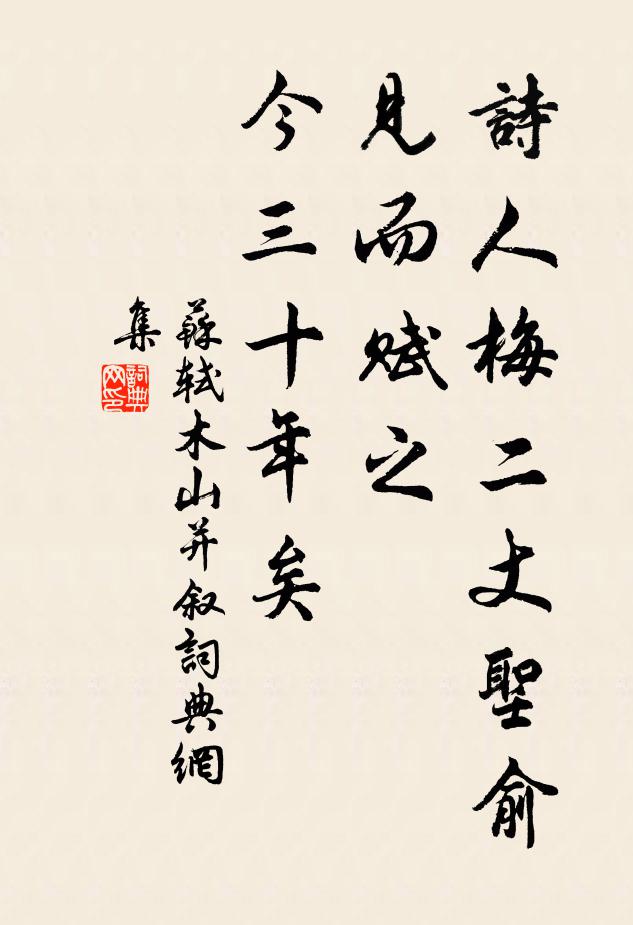 詩人梅二丈聖俞
見而賦之
今三十年矣
蘇軾木山并叙詞典網
集
詞典
网印